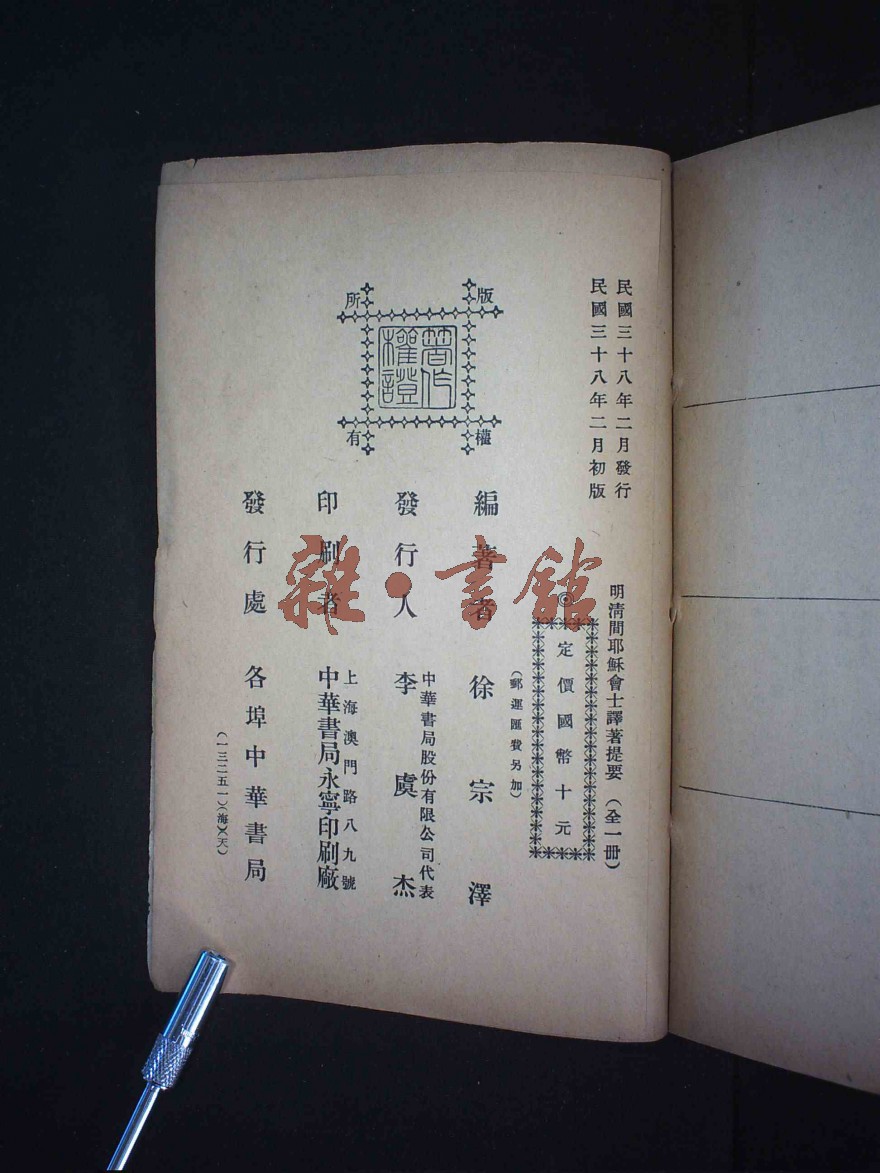 民國三十八年二月發行
民國三十八年二月初版
明清間耶穌會士譯著提要(全一冊)
◎
定價國幣十元
(郵運匯費另加)
版權所有
著作權證
編著者 徐宗澤
發行人 中華書局股份有限公司代表
李虞杰
印刷者 上海澳門路八九號
中華書局永寧印刷廠
發行處 各埠中華書局
(一三二五一)(海)(天)
雜·書館